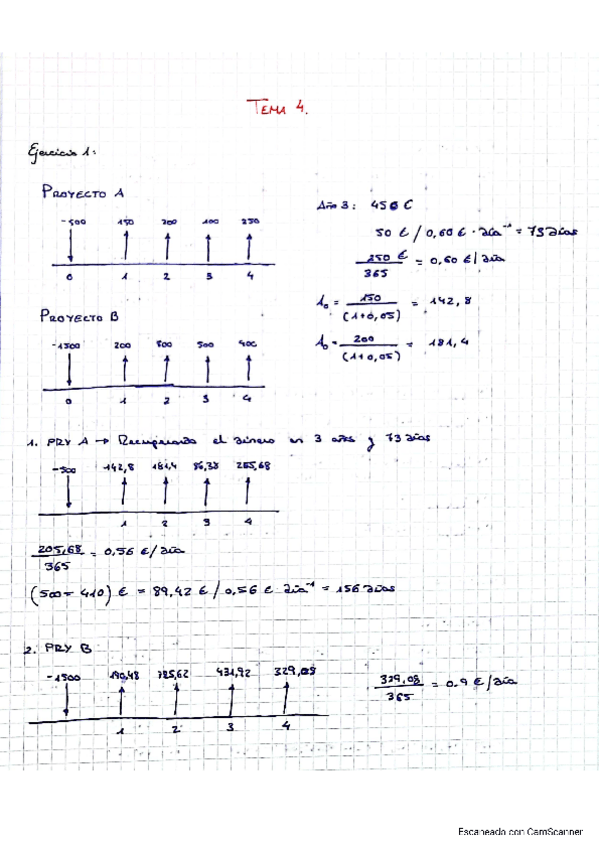 TEMA 4.
Ejercicio 1:
PROYECTO A
-500 150 200 100 250
0 1 2 3 4
Año 3: 450 €
50 € / 0,60 € · día⁻¹ = 73 días
250 € / 365 = 0,60 €/día
1₀ = 150 / (1+0,05) = 142,8
1₀ = 200 / (1+0,05) = 181,4
PROYECTO B
-1500 200 800 500 400
0 1 2 3 4
1. PRY A → Recuperando el dinero en 3 años y 73 días
-500 142,8 181,4 86,38 205,68
1 2 3 4
205,68 / 365 = 0,56 €/día
(500 - 410) € = 89,42 € / 0,56 € día⁻¹ = 156 días
2. PRY B
-1500 190,48 725,62 431,92 329,08
1 2 3 4
329,08 / 365 = 0.9 €/día
Escaneado con CamScanner